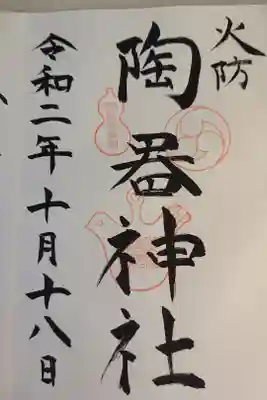 火防
陶器神社
令和二年十月十八日